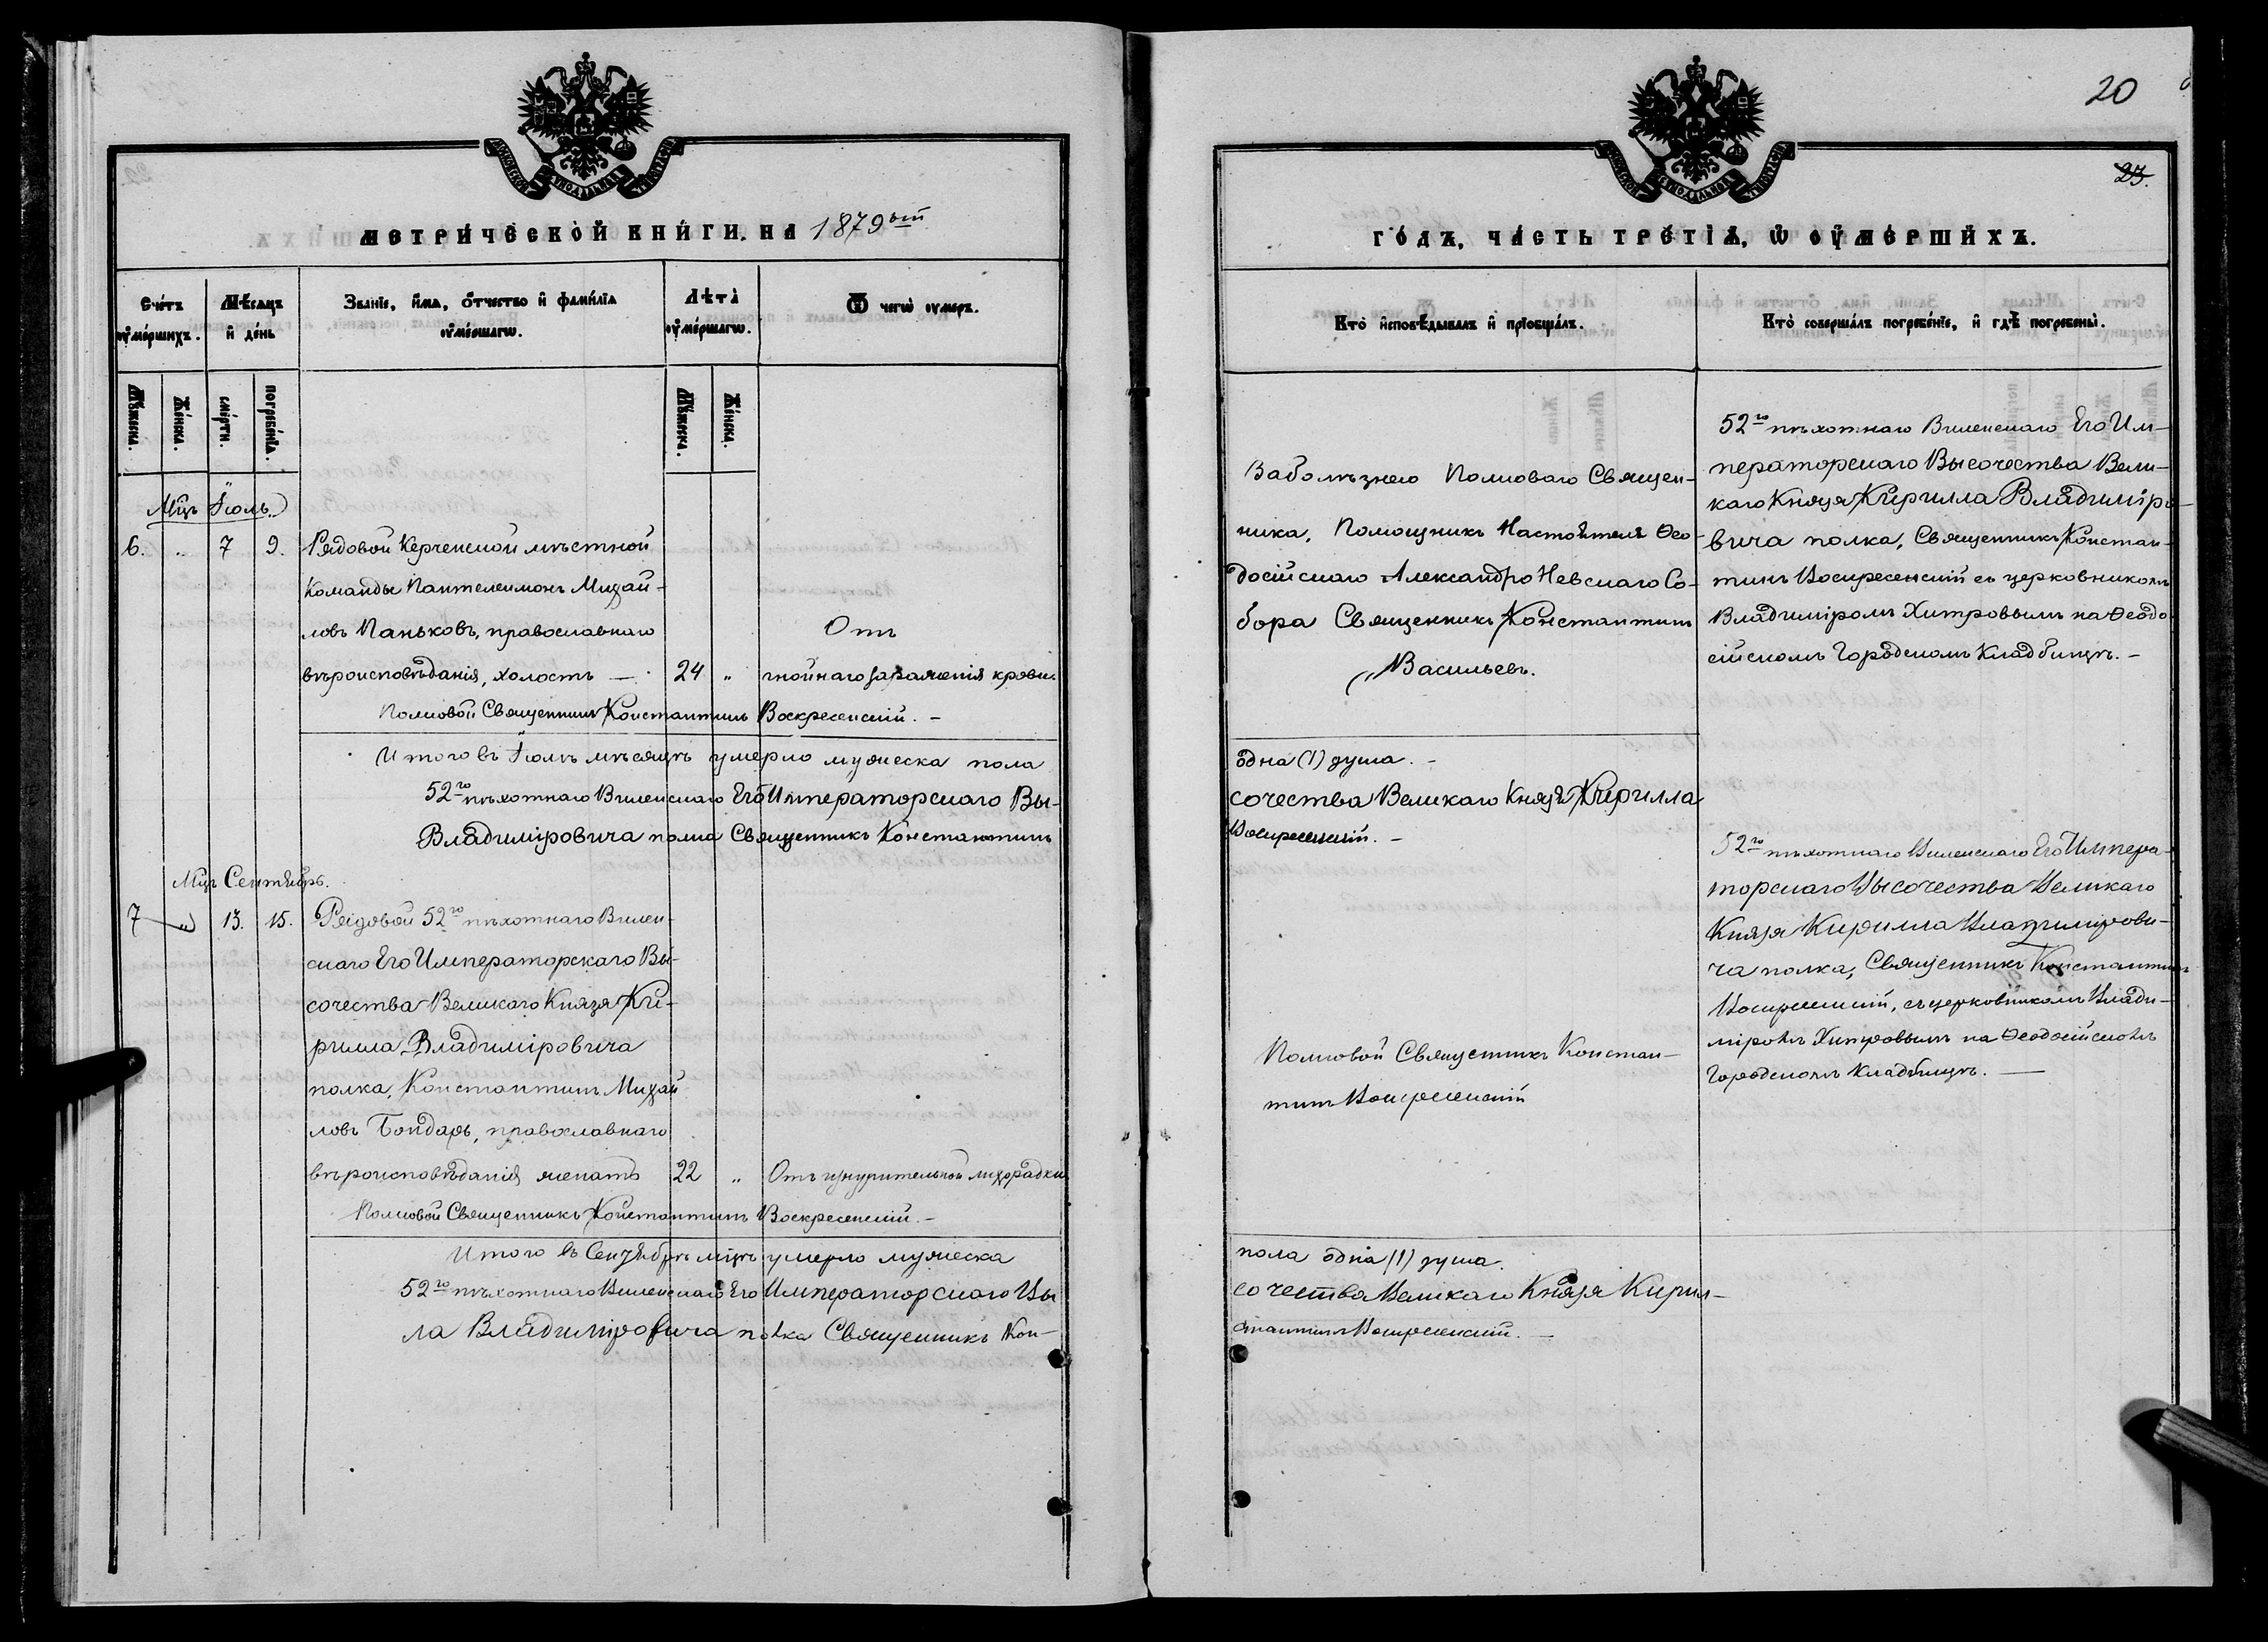 20
23.
МОСКОВСКОЙ СѴНОДАЛЬНОЙ ТИПОГРАФІИ
МОСКОВСКОЙ СѴНОДАЛЬНОЙ ТИПОГРАФІИ
МЕТРИ́ЧЕСКОЙ КНИ́ГИ, НА 1879ый
ГО́ДЪ, ЧА́СТЬ ТРЕ́ТІѦ, Ѡ ОУ҆МЕ́РШИХЪ.
Сче́тъ оу҆ме́ршихъ.
Мѣ́сяцъ и҆ де́нь
Зва́нїе, и҆́мѧ, ѻ҆́тчество и҆ фами́лїа оу҆ме́ршагѡ.
Лѣта̀ оу҆ме́ршагѡ.
Ѿ чегѡ̀ оу҆́меръ.
Кто̀ и҆сповѣ́дывалъ и҆ прїѡбща́лъ.
Кто̀ соверша́лъ погребе́нїе, и҆ гдѣ̀ погребены̀.
Мꙋ́жеска.
Же́нска.
сме́рти.
погребе́нїѧ.
Мꙋ́жеска.
Же́нска.
Мцъ Іюль.
6. „ 7 9. Рядовой Керченской мѣстной
команды Пантелеимонъ Михай-
ловъ Паньковъ, православнаго
вѣроисповѣданія, холостъ — 24 „
Отъ
гнойнаго зараженія крови.
Полковой Священникъ Константинъ Воскресенскій. –
Заболѣзнею Полковаго Священ-
ника, Помощникъ Настоятеля Ѳео-
досійскаго Александро Невскаго Со-
бора Священникъ Константинъ
Васильевъ.
52го пѣхотнаго Виленскаго Его Им-
ператорскаго Высочества Вели-
каго Князя Кирилла Владиміро-
вича полка, Священникъ Констан-
тинъ Воскресенскій съ церковникомъ
Владиміромъ Хитровымъ на Ѳеодо-
сійскомъ Городскомъ Кладбищѣ. –
Итого въ Іюлѣ мѣсяцѣ умерло мужеска пола одна (1) душа. –
52го пѣхотнаго Виленскаго Его Императорскаго Вы-сочества Великаго Князя Кирилла
Владиміровича полка Священникъ Константинъ Воскресенскій. –
Мцъ Сентябрь.
7 „ 13. 15. Рядовой 52го пѣхотнаго Вилен-
скаго Его Императорскаго Вы-
сочества Великаго Князя Ки-
рилла Владиміровича
полка, Константинъ Михай
ловъ Бондарь, православнаго
вѣроисповѣданія женатъ 22 „ Отъ изнурительной лихорадки
Полковой Священникъ Константинъ Воскресенскій. –
Полковой Священникъ Констан-
тинъ Воскресенскій
52го пѣхотнаго Виленскаго Его Импера-
торскаго Высочества Великаго
Князя Кирилла Владимірови-
ча полка, Священникъ Константинъ
Воскресенскій, съ церковникомъ Влади-
міромъ Хитровымъ на Ѳеодосійскомъ
Городскомъ Кладбищѣ. —
Итого въ Сентябрѣ мцѣ умерло мужеска пола одна (1) душа.
52го пѣхотнаго Виленскаго Его Императорскаго Вы сочества Великаго Князя Кирил-
ла Владиміровича полка Священникъ Кон-стантинъ Воскресенскій. —